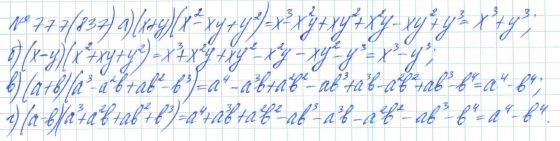 № 777(837) а) (x+y)(x²-xy+y²)=x³-x²y+xy²+x²y-xy²+y³=x³+y³;
б) (x-y)(x²+xy+y²)=x³+x²y+xy²-x²y-xy²-y³=x³-y³;
в) (a+b)(a³-a²b+ab²-b³)=a⁴-a³b+a²b²-ab³+a³b-a²b²+ab³-b⁴=a⁴-b⁴;
г) (a-b)(a³+a²b+ab²+b³)=a⁴+a³b+a²b²-ab³-a³b-a²b²-ab³-b⁴=a⁴-b⁴.